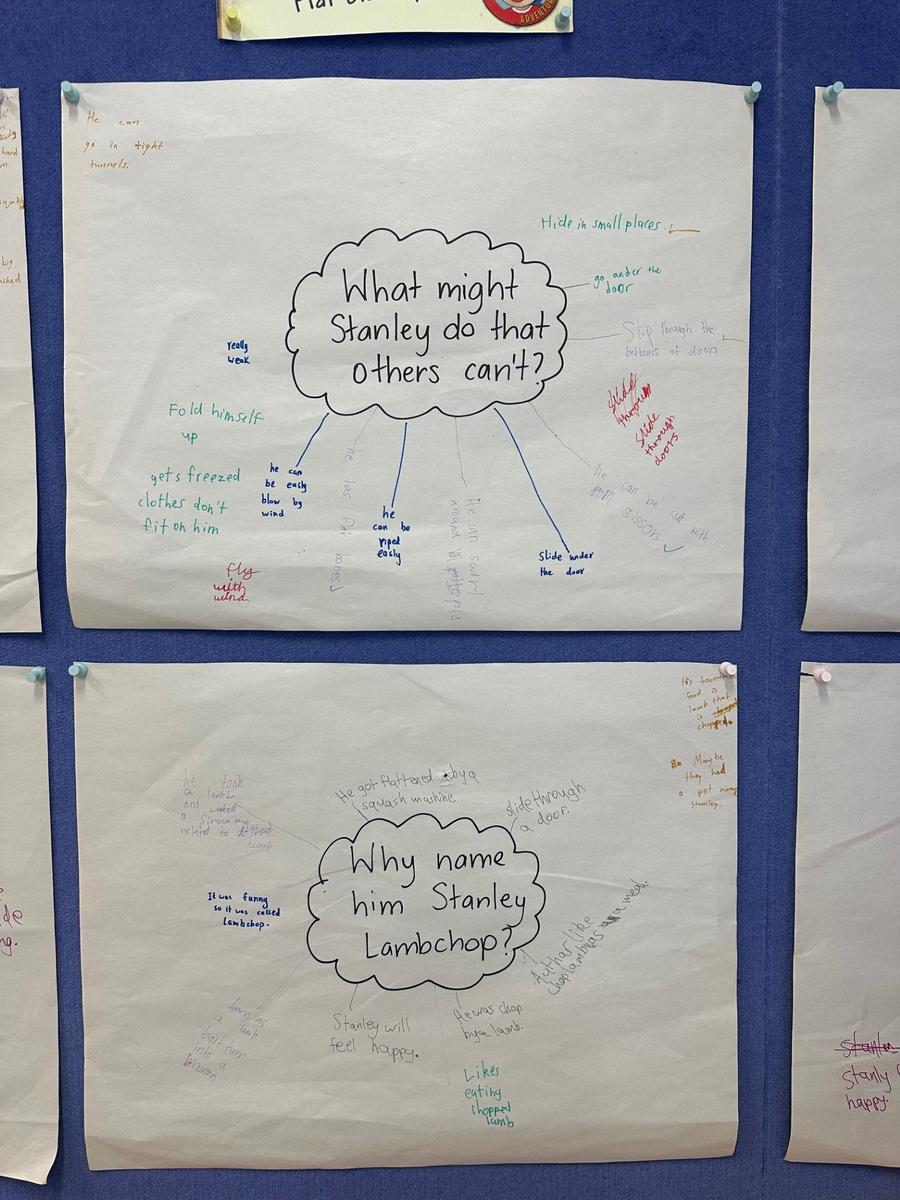 ADVENTUR
He can
go in tight
tunnels.
Hide in small places
What might
Stanley do that
others can't?
go under the
door
Slip through the
bottoms of doors
really
weak
slide
through
slide
through
doors
Fold himself
up
gets freezed
clothes don't
fit on him
he can
be easly
blow by
wind
he has flat bones
he
can be
riped
easly
He can swirl
around
Slide under
the door
he can be cut with
sissors
fly
with
wind
His favourite
food is
lamb that
is
chopped.
Maybe
they had
a pet
Stanley.
he took
a lamb
and wanted
a
related to different
He got flattened by a
squash mashine
slide through
a door.
Why name
him Stanley
Lambchop?
It was funny
so it was called
Lambchop.
Author like
chop lamb as a meal.
born as
a lamb
but turn
into a
Stanley will
feel happy.
He was chop
by a lamb.
Likes
eating
chopped
lamb
Stanly
happy.